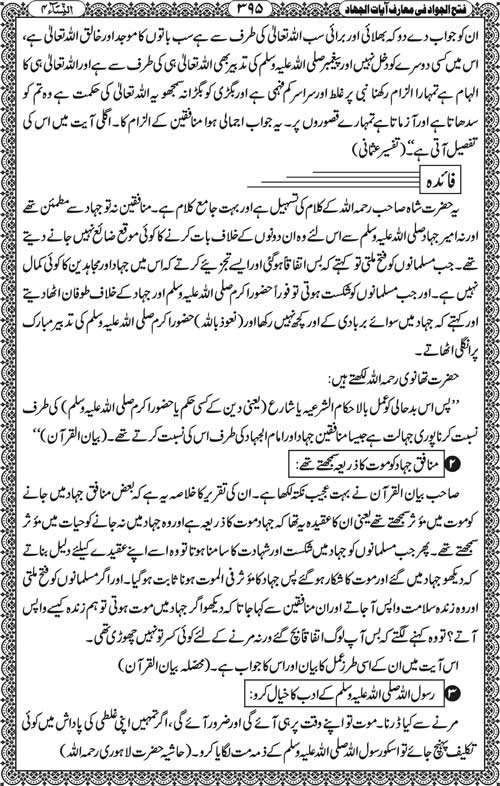 فتح الجواد فی معارف آیات الجهاد
۳۹۵
النسآء ۴
ان کو جواب دے دو کہ بھلائی اور برائی سب اللہ تعالیٰ کی طرف سے ہے سب باتوں کا موجد اور خالق اللہ تعالیٰ ہے،
اس میں کسی دوسرے کو دخل نہیں اور پیغمبر صلی اللہ علیہ وسلم کی تدبیر بھی اللہ تعالیٰ ہی کی طرف سے ہے اور اللہ تعالیٰ ہی کا
الہام ہے تمہارا الزام رکھنا نبی پر غلط اور سراسر کم فہمی ہے اور بگڑی کو بگڑا نہ سمجھو یہ اللہ تعالیٰ کی حکمت ہے وہ تم کو
سدھاتا ہے اور آزماتا ہے تمہارے قصوروں پر۔ یہ جواب اجمالی ہوا منافقین کے الزام کا۔ اگلی آیت میں اس کی
تفصیل آتی ہے‘‘ (تفسیر عثمانی)
فائدہ
یہ حضرت شاہ صاحب رحمہ اللہ کے کلام کی تسہیل ہے اور بہت جامع کلام ہے۔ منافقین نہ تو جہاد سے مطمئن تھے
اور نہ امیر جہاد صلی اللہ علیہ وسلم سے اس لئے وہ ان دونوں کے خلاف بات کرنے کا کوئی موقع ضائع نہیں جانے دیتے
تھے۔ جب مسلمانوں کو فتح ملتی تو کہتے کہ بس اتفاقاً ہوگئی اور ایسے تجزیئے کرتے کہ اس میں جہاد اور مجاہدین کا کوئی کمال
نہیں ہے۔ اور جب مسلمانوں کو شکست ہوتی تو فوراً حضور اکرم صلی اللہ علیہ وسلم اور جہاد کے خلاف طوفان اٹھا دیتے
اور کہتے کہ جہاد میں سوائے بربادی کے اور کچھ نہیں رکھا اور (نعوذ باللہ) حضور اکرم صلی اللہ علیہ وسلم کی تدبیر مبارک
پر انگلی اٹھاتے۔
حضرت تھانوی رحمہ اللہ لکھتے ہیں:
’’پس اس بدحالی کو عمل بالاحکام الشرعیہ یا شارع (یعنی دین کے کسی حکم یا حضور اکرم صلی اللہ علیہ وسلم) کی طرف
نسبت کرنا پوری جہالت ہے جیسا منافقین جہاد اور امام الجہاد کی طرف اس کی نسبت کرتے تھے۔ (بیان القرآن)‘‘
۲ منافق جہاد کو موت کا ذریعہ سمجھتے تھے:
صاحب بیان القرآن نے بہت عجیب نکتہ لکھا ہے۔ ان کی تقریر کا خلاصہ یہ ہے کہ بعض منافق جہاد میں جانے
کو موت میں مؤثر سمجھتے تھے یعنی ان کا عقیدہ یہ تھا کہ جہاد موت کا ذریعہ ہے اور وہ جہاد میں نہ جانے کو حیات میں مؤثر
سمجھتے تھے۔ پھر جب مسلمانوں کو جہاد میں شکست اور شہادت کا سامنا ہوتا تو وہ اسے اپنے عقیدے کیلئے دلیل بناتے
کہ دیکھو جہاد میں گئے اور موت کا شکار ہوگئے پس جہاد کا مؤثر فی الموت ہونا ثابت ہوگیا۔ اور اگر مسلمانوں کو فتح ملتی
اور وہ زندہ سلامت واپس آجاتے اور ان منافقین سے کہا جاتا کہ دیکھو اگر جہاد میں موت ہوتی تو ہم زندہ کیسے واپس
آتے؟ تو وہ کہنے لگتے کہ بس آپ لوگ اتفاقاً بچ گئے ورنہ مرنے کے لئے کوئی کسر تو نہیں چھوڑی تھی۔
اس آیت میں ان کے اسی طرز عمل کا بیان اور اس کا جواب ہے۔ (محصلہ بیان القرآن)
۳ رسول اللہ صلی اللہ علیہ وسلم کے ادب کا خیال کرو:
مرنے سے کیا ڈرنا۔ موت تو اپنے وقت پر ہی آئے گی اور ضرور آئے گی، اگر تمہیں اپنی غلطی کی پاداش میں کوئی
تکلیف پہنچ جائے تو اسکو رسول اللہ صلی اللہ علیہ وسلم کے ذمہ مت لگایا کرو۔ (حاشیہ حضرت لاہوری رحمہ اللہ)